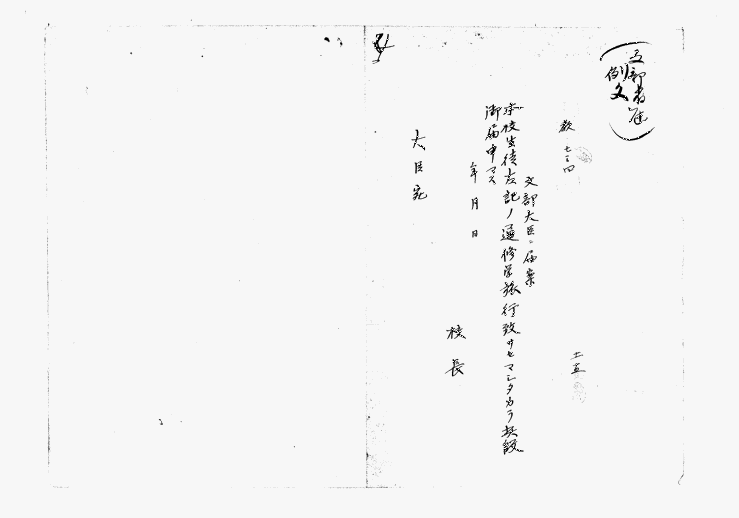 (文部省届
例文)
教七三四
十一五
文部大臣ニ届案
本校生徒左記ノ通修学旅行致サセマシタカラ此段
御届申マス
年月日
校長
大臣宛